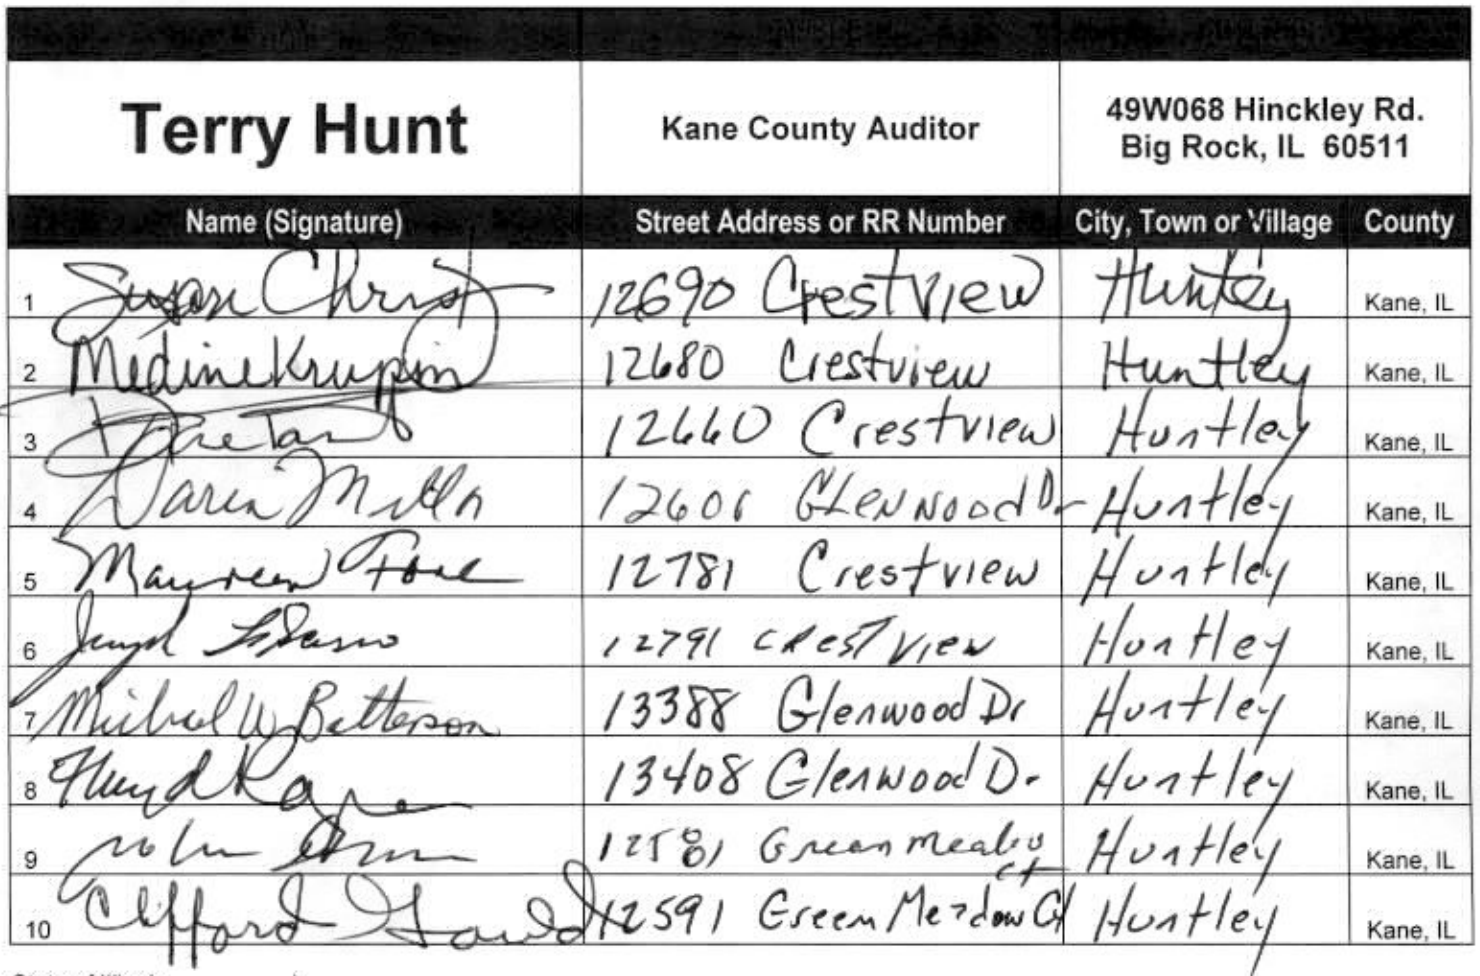 Terry Hunt Kane County Auditor 49W068 Hinckley Rd.
Big Rock, IL 60511
Name (Signature) Street Address or RR Number City, Town or Village County
1 Susan Christ 12690 Crestview Huntley Kane, IL
2 Medine Krupin 12680 Crestview Huntley Kane, IL
3 12660 Crestview Huntley Kane, IL
4 Daren 12601 Glenwood Dr Huntley Kane, IL
5 Maureen 12781 Crestview Huntley Kane, IL
6 12791 Crestview Huntley Kane, IL
7 Michael W Batterson 13388 Glenwood Dr Huntley Kane, IL
8 13408 Glenwood Dr Huntley Kane, IL
9 12581 Green Meadow Huntley Kane, IL
ct
10 Clifford 12591 Green Meadow Ct Huntley Kane, IL